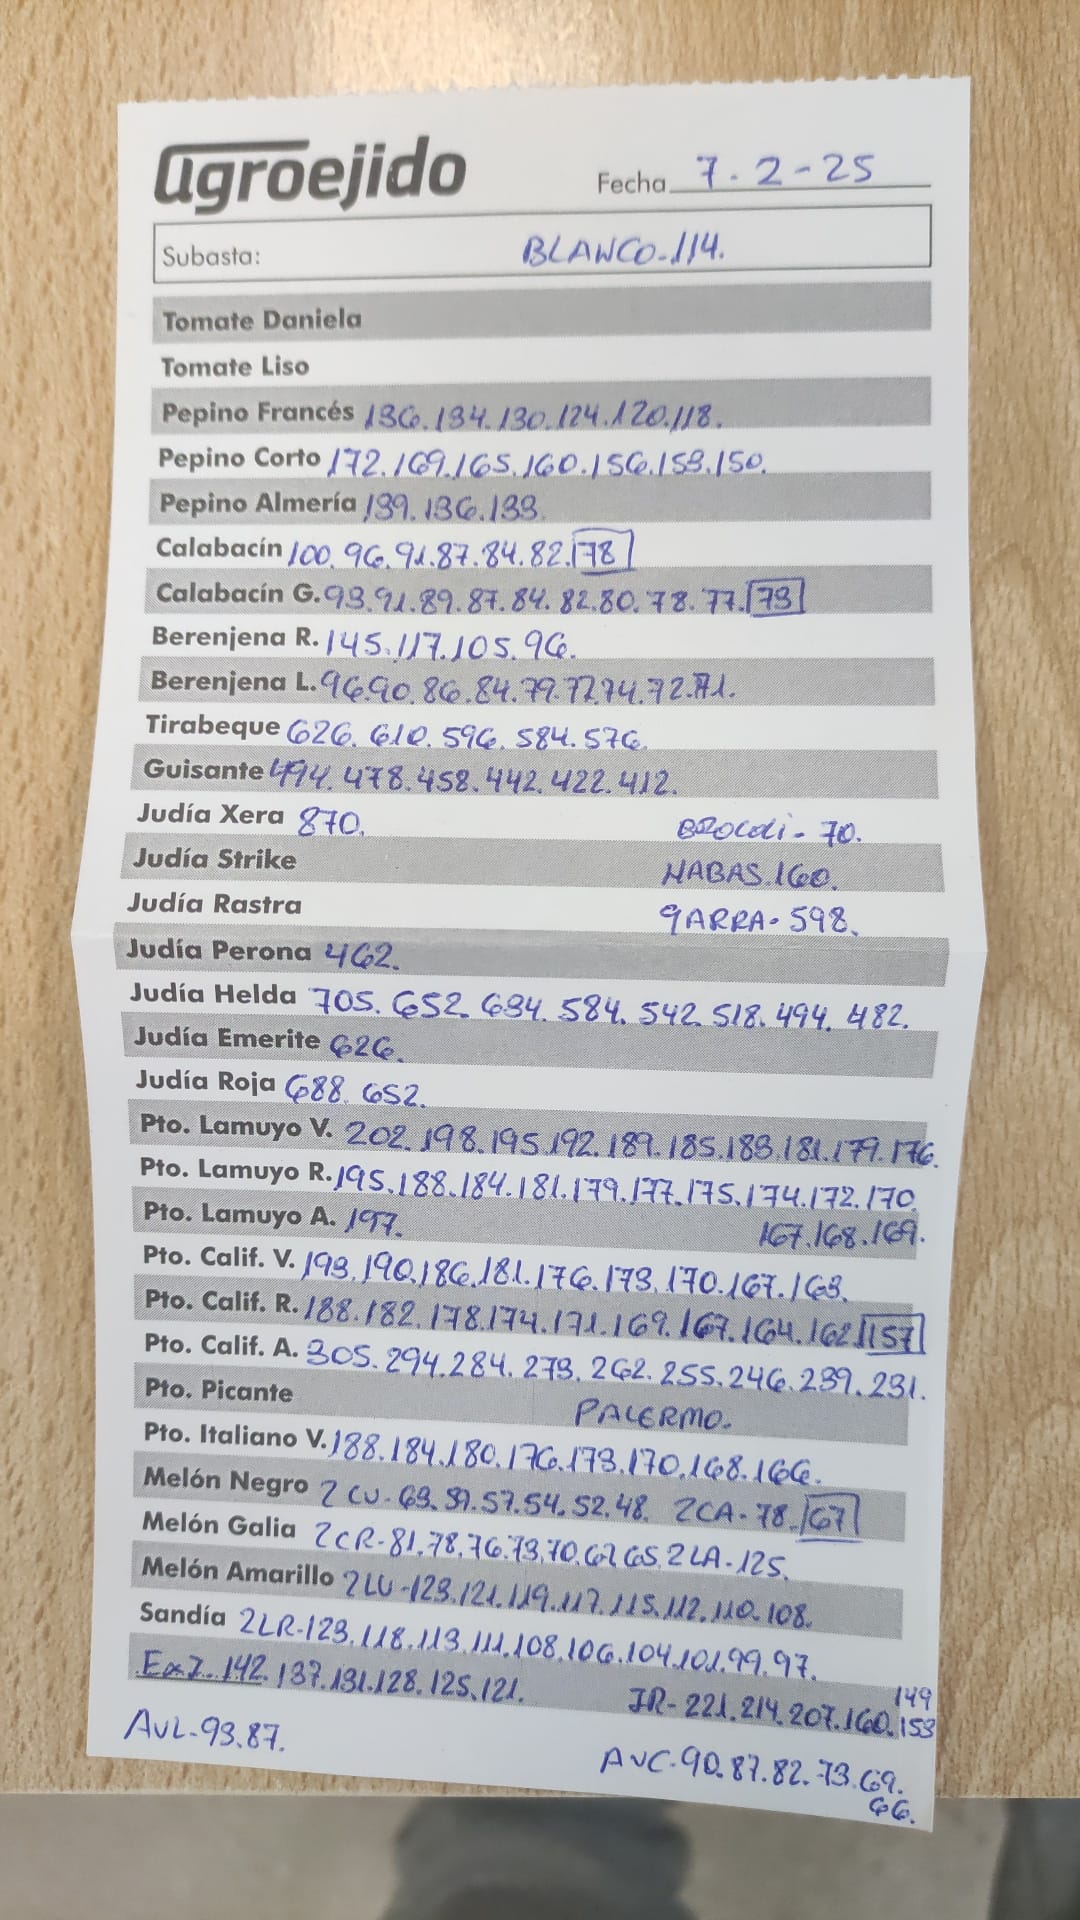 agroejido
Fecha 7-2-25
Subasta: BLANCO-114.
Tomate Daniela
Tomate Liso
Pepino Francés 136.134.130.124.120.118.
Pepino Corto 172.169.165.160.156.153.150.
Pepino Almería 139.136.133.
Calabacín 100.96.91.87.84.82.78
Calabacín G. 93.91.89.87.84.82.80.78.77.73
Berenjena R. 145.117.105.96.
Berenjena L. 96.90.86.84.79.77.74.72.71.
Tirabeque 626.610.596.584.576.
Guisante 494.478.458.442.422.412.
Judía Xera 870. BROCOLI-70.
Judía Strike HABAS.160.
Judía Rastra GARRA-598.
Judía Perona 462.
Judía Helda 705.652.634.584.542.518.494.482.
Judía Emerite 626.
Judía Roja 688.652.
Pto. Lamuyo V. 202.198.195.192.189.185.183.181.179.176.
Pto. Lamuyo R. 195.188.184.181.179.177.175.174.172.170.
Pto. Lamuyo A. 197. 167.168.169.
Pto. Calif. V. 193.190.186.181.176.173.170.167.163.
Pto. Calif. R. 188.182.178.174.171.169.167.164.162.157
Pto. Calif. A. 305.294.284.273.262.255.246.239.231.
Pto. Picante PALERMO.
Pto. Italiano V. 188.184.180.176.173.170.168.166.
Melón Negro 2CU-63.59.57.54.52.48. 2CA-78.67
Melón Galia 2CR-81.78.76.73.70.67.65. 2LA-125.
Melón Amarillo 2LU-123.121.119.117.115.112.110.108.
Sandía 2LR-123.118.113.111.108.106.104.101.99.97.
142.137.131.128.125.121. JR-221.214.207.160.153
149
AVL-93.87.
AVC-90.87.82.73.69.
66.